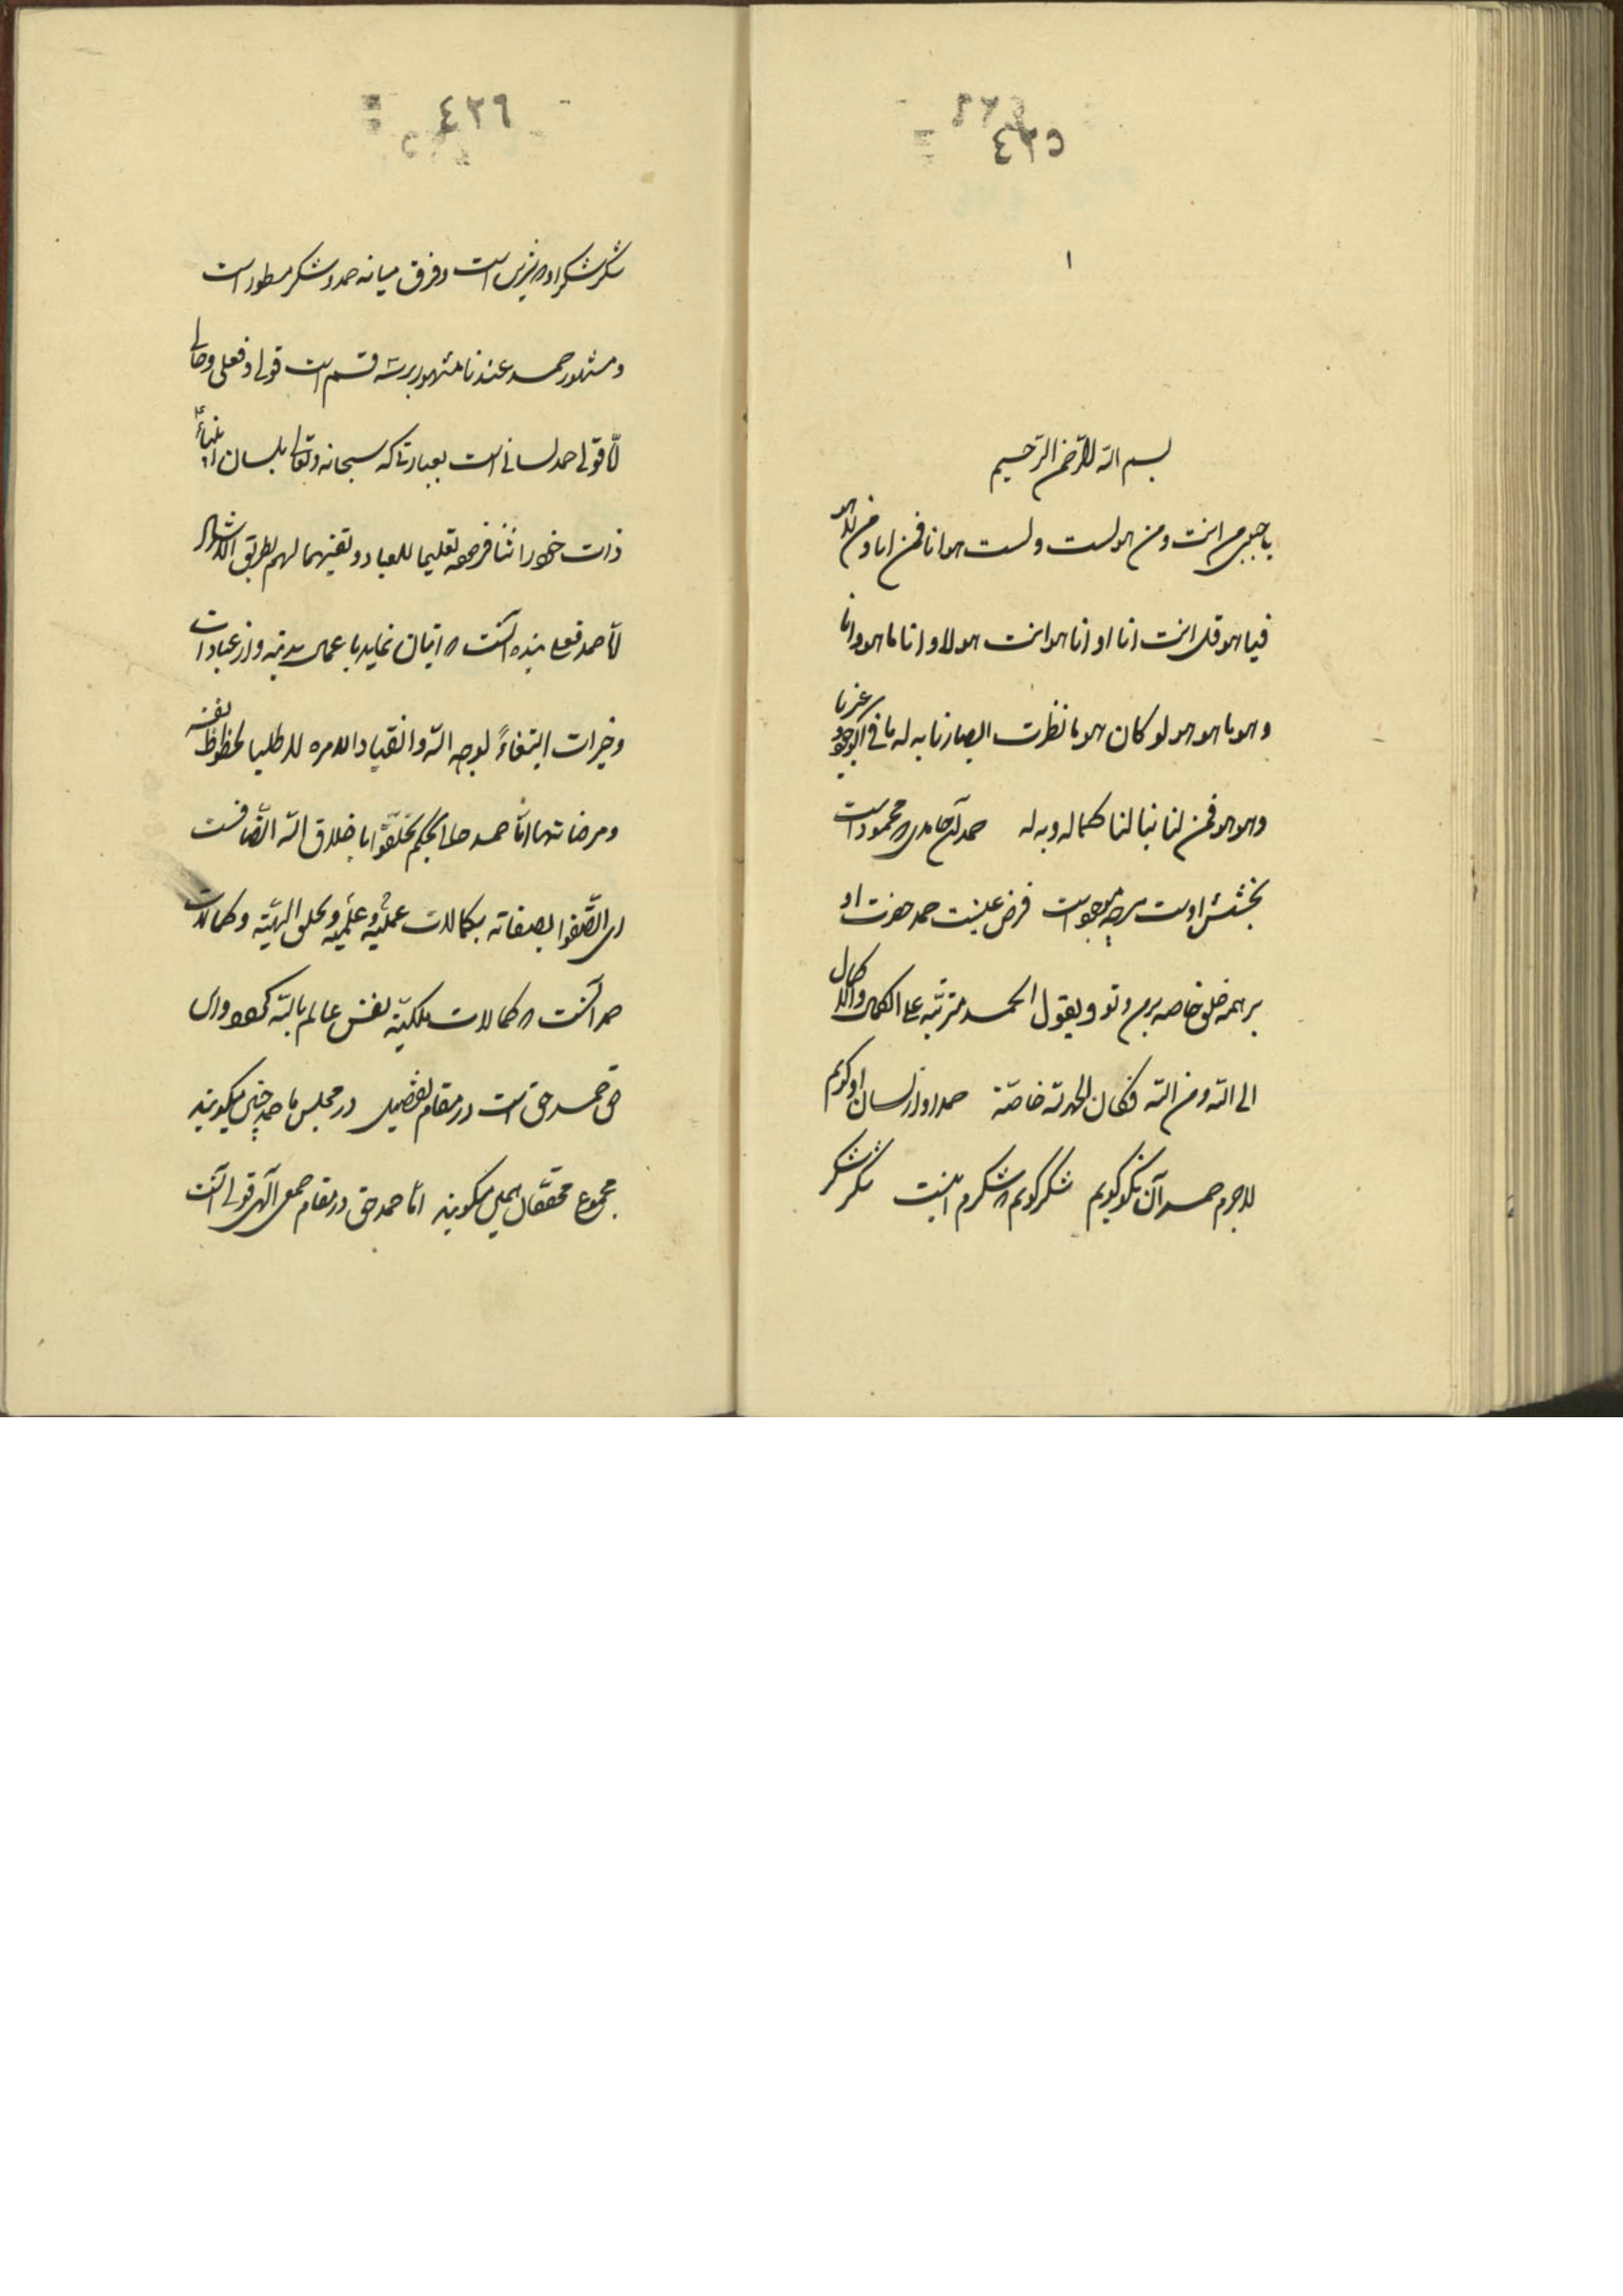 ٤٢٥
١
بسم الله الرحمن الرحيم
يا حبيبى من انت ومن هو لست ولست هو انا فمن انا ومن
فيا هو قل انت انا او انا هو انت هو لا وانا ما هو وانا
وهو ما هو هو لو كان هو ما نظرت ابصارنا به له ما فى الوجود غيرنا
وهو هو فمن لنا بنا لنا كما له وبه له حمد آن محمود است
بخشش اوست هرچه موجود است فرض عينست حمد حضرت او
بر همه خلق خاصه بر من وتو ويقول الحمد مترتبه على الكمال ولا كمال
الى الله ومن الله فكان الحمد لله خاصّة حمد او از لسان او گويم
لاجرم حمد آن نكو گويم شكر گويم شكرم اينست شكر شكر
٤٢٦
شكر شكر او است وفرق ميانه حمد وشكر مسطور است
ومشهور حمد عندنا مشهور بر سه قسم است قولى وفعلى وحالى
امّا قولى حمد لسانى است بعبارتى كه سبحانه وتعالى بلسان انبياء
ذات خود را ثنا فرموده تعليما للعباد وتفهيما لهم بطريق
امّا حمد فعلى بنده آنست اتيان نمايد باعمال بدنيه واز عبادات
وخيرات ابتغاءً لوجه الله وانقيادا لامره لا طلبا لحظوظ نفسه
ومرضاتها امّا حمد حالى بحكم تخلّقوا باخلاق الله اتّصافست
اى اتّصفوا بصفاته بكمالات عمليّه وعلميّه وتخلق الهيّه وكمالات
حمد آنست كمالات ملكيّه نفس عالم بالله
حق حمد حق است در مقام تفضيلى در مجلس ما حمد چنين ميگويند
مجموع محققان همين ميگويند امّا حمد حق در مقام جمعى الهى قولى آنست